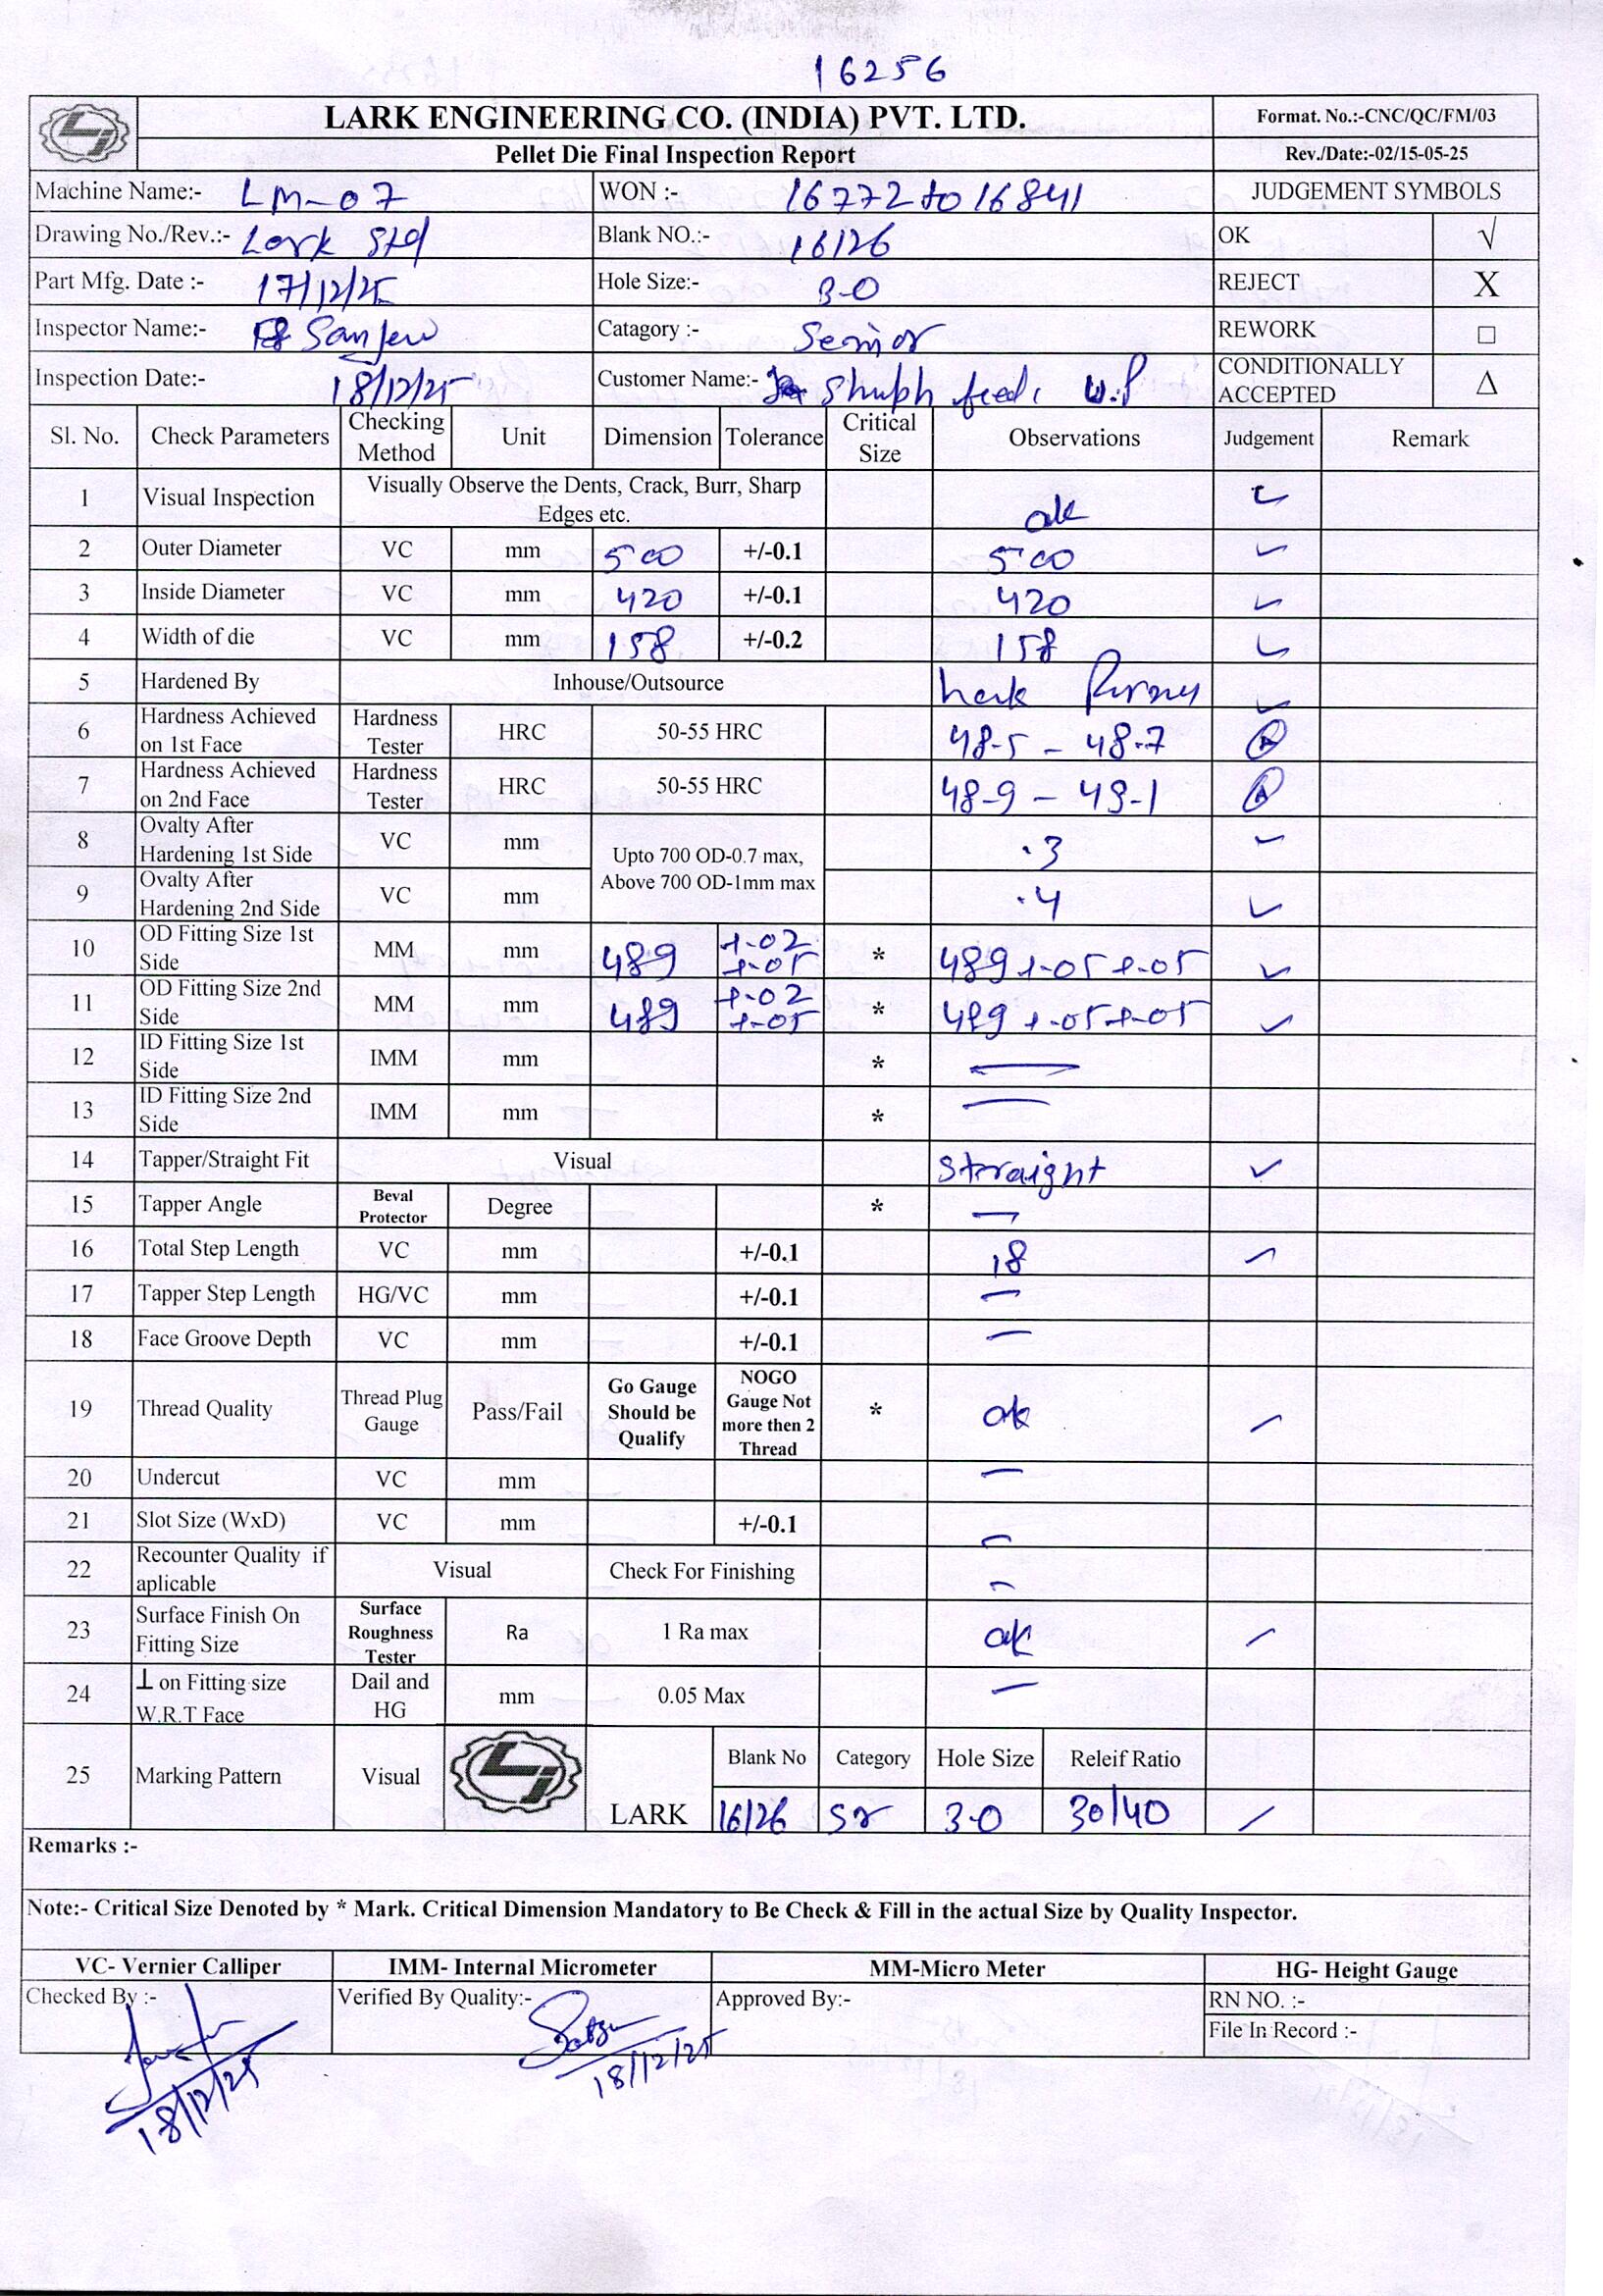 16256
LARK ENGINEERING CO. (INDIA) PVT. LTD.
Format. No.:-CNC/QC/FM/03
Pellet Die Final Inspection Report
Rev./Date:-02/15-05-25
Machine Name:- LM-07 WON :- 16772 to 16841 JUDGEMENT SYMBOLS
Drawing No./Rev.:- Lark Std Blank NO.:- 16126 OK √
Part Mfg. Date :- 17/12/25 Hole Size:- 3-0 REJECT X
Inspector Name:- Catagory :- Senior REWORK □
Inspection Date:- 18/12/25 Customer Name:- Shubh feed U.P CONDITIONALLY ACCEPTED Δ
Sl. No. Check Parameters Checking Method Unit Dimension Tolerance Critical Size Observations Judgement Remark
1 Visual Inspection Visually Observe the Dents, Crack, Burr, Sharp Edges etc. ok ✓
2 Outer Diameter VC mm 500 +/-0.1 500 ✓
3 Inside Diameter VC mm 420 +/-0.1 420 ✓
4 Width of die VC mm 158 +/-0.2 158 ✓
5 Hardened By Inhouse/Outsource Lark ✓
6 Hardness Achieved on 1st Face Hardness Tester HRC 50-55 HRC 48-5 - 48.7
7 Hardness Achieved on 2nd Face Hardness Tester HRC 50-55 HRC 48-9 - 49-1
8 Ovalty After Hardening 1st Side VC mm Upto 700 OD-0.7 max, Above 700 OD-1mm max .3 ✓
9 Ovalty After Hardening 2nd Side VC mm .4 ✓
10 OD Fitting Size 1st Side MM mm 489 +.02 +.05 * 489 +.05 +.05 ✓
11 OD Fitting Size 2nd Side MM mm 489 +.02 +.05 * 489 +.05 +.05 ✓
12 ID Fitting Size 1st Side IMM mm * —
13 ID Fitting Size 2nd Side IMM mm * —
14 Tapper/Straight Fit Visual Straight ✓
15 Tapper Angle Beval Protector Degree * —
16 Total Step Length VC mm +/-0.1 18 ✓
17 Tapper Step Length HG/VC mm +/-0.1 —
18 Face Groove Depth VC mm +/-0.1 —
19 Thread Quality Thread Plug Gauge Pass/Fail Go Gauge Should be Qualify NOGO Gauge Not more then 2 Thread * ok ✓
20 Undercut VC mm —
21 Slot Size (WxD) VC mm +/-0.1 —
22 Recounter Quality if aplicable Visual Check For Finishing —
23 Surface Finish On Fitting Size Surface Roughness Tester Ra 1 Ra max ok ✓
24 ⊥ on Fitting size W.R.T Face Dail and HG mm 0.05 Max —
25 Marking Pattern Visual LARK Blank No Category Hole Size Releif Ratio
16126 Sr 3-0 30/40 ✓
Remarks :-
Note:- Critical Size Denoted by * Mark. Critical Dimension Mandatory to Be Check & Fill in the actual Size by Quality Inspector.
VC- Vernier Calliper IMM- Internal Micrometer MM-Micro Meter HG- Height Gauge
Checked By :- Verified By Quality:- Approved By:- RN NO. :-
File In Record :-
18/12/25 18/12/25